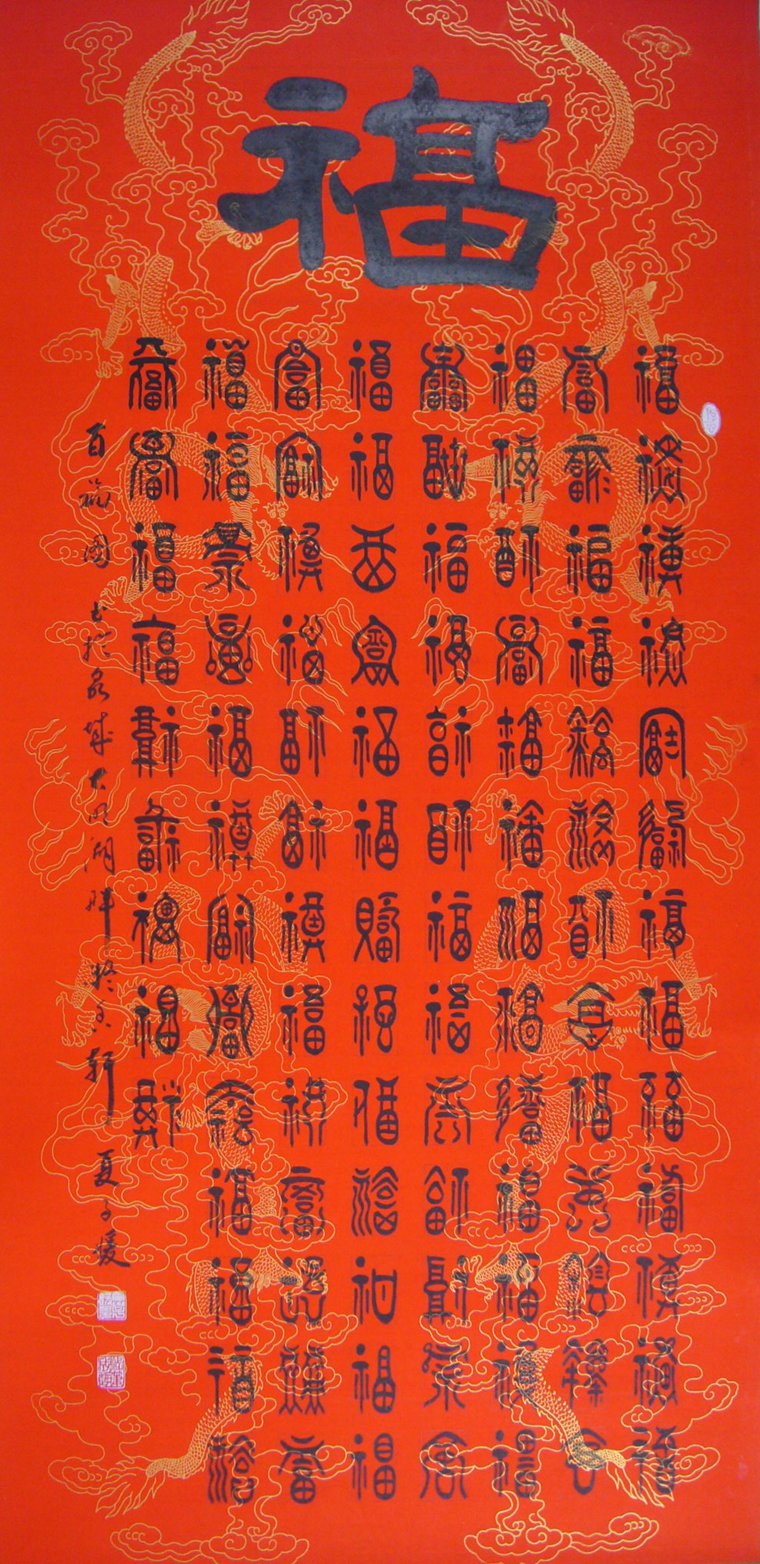 福
福福福福福福福福福福福福福
福福福福福福福福福福福福福
福福福福福福福福福福福福福
福福福福福福福福福福福福福
福福福福福福福福福福福福福
福福福福福福福福福福福福福
福福福福福福福福福福福福福
福福福福福福福福福
百福圖书於泉城大明湖畔轩夏子媛